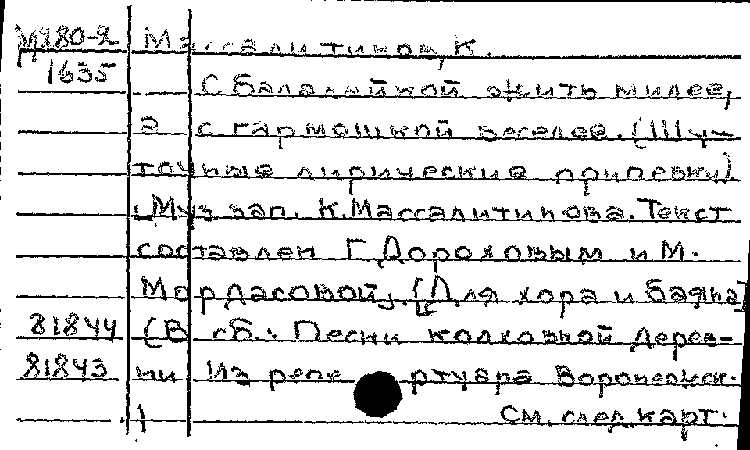 М280-2 Массалитинов, К.
1635 С балалайкой жить милее,
а с гармошкой веселее. (Шу-
точные лирические припевки)
(Муз. зап. К. Массалитинова. Текст
составлен Г. Дороховым и М.
Мордасовой). [Для хора и баяна]
81844 (В сб.: Песни колхозной дерев-
81843 ни Из репертуара Воронежск.
См. след. карт.